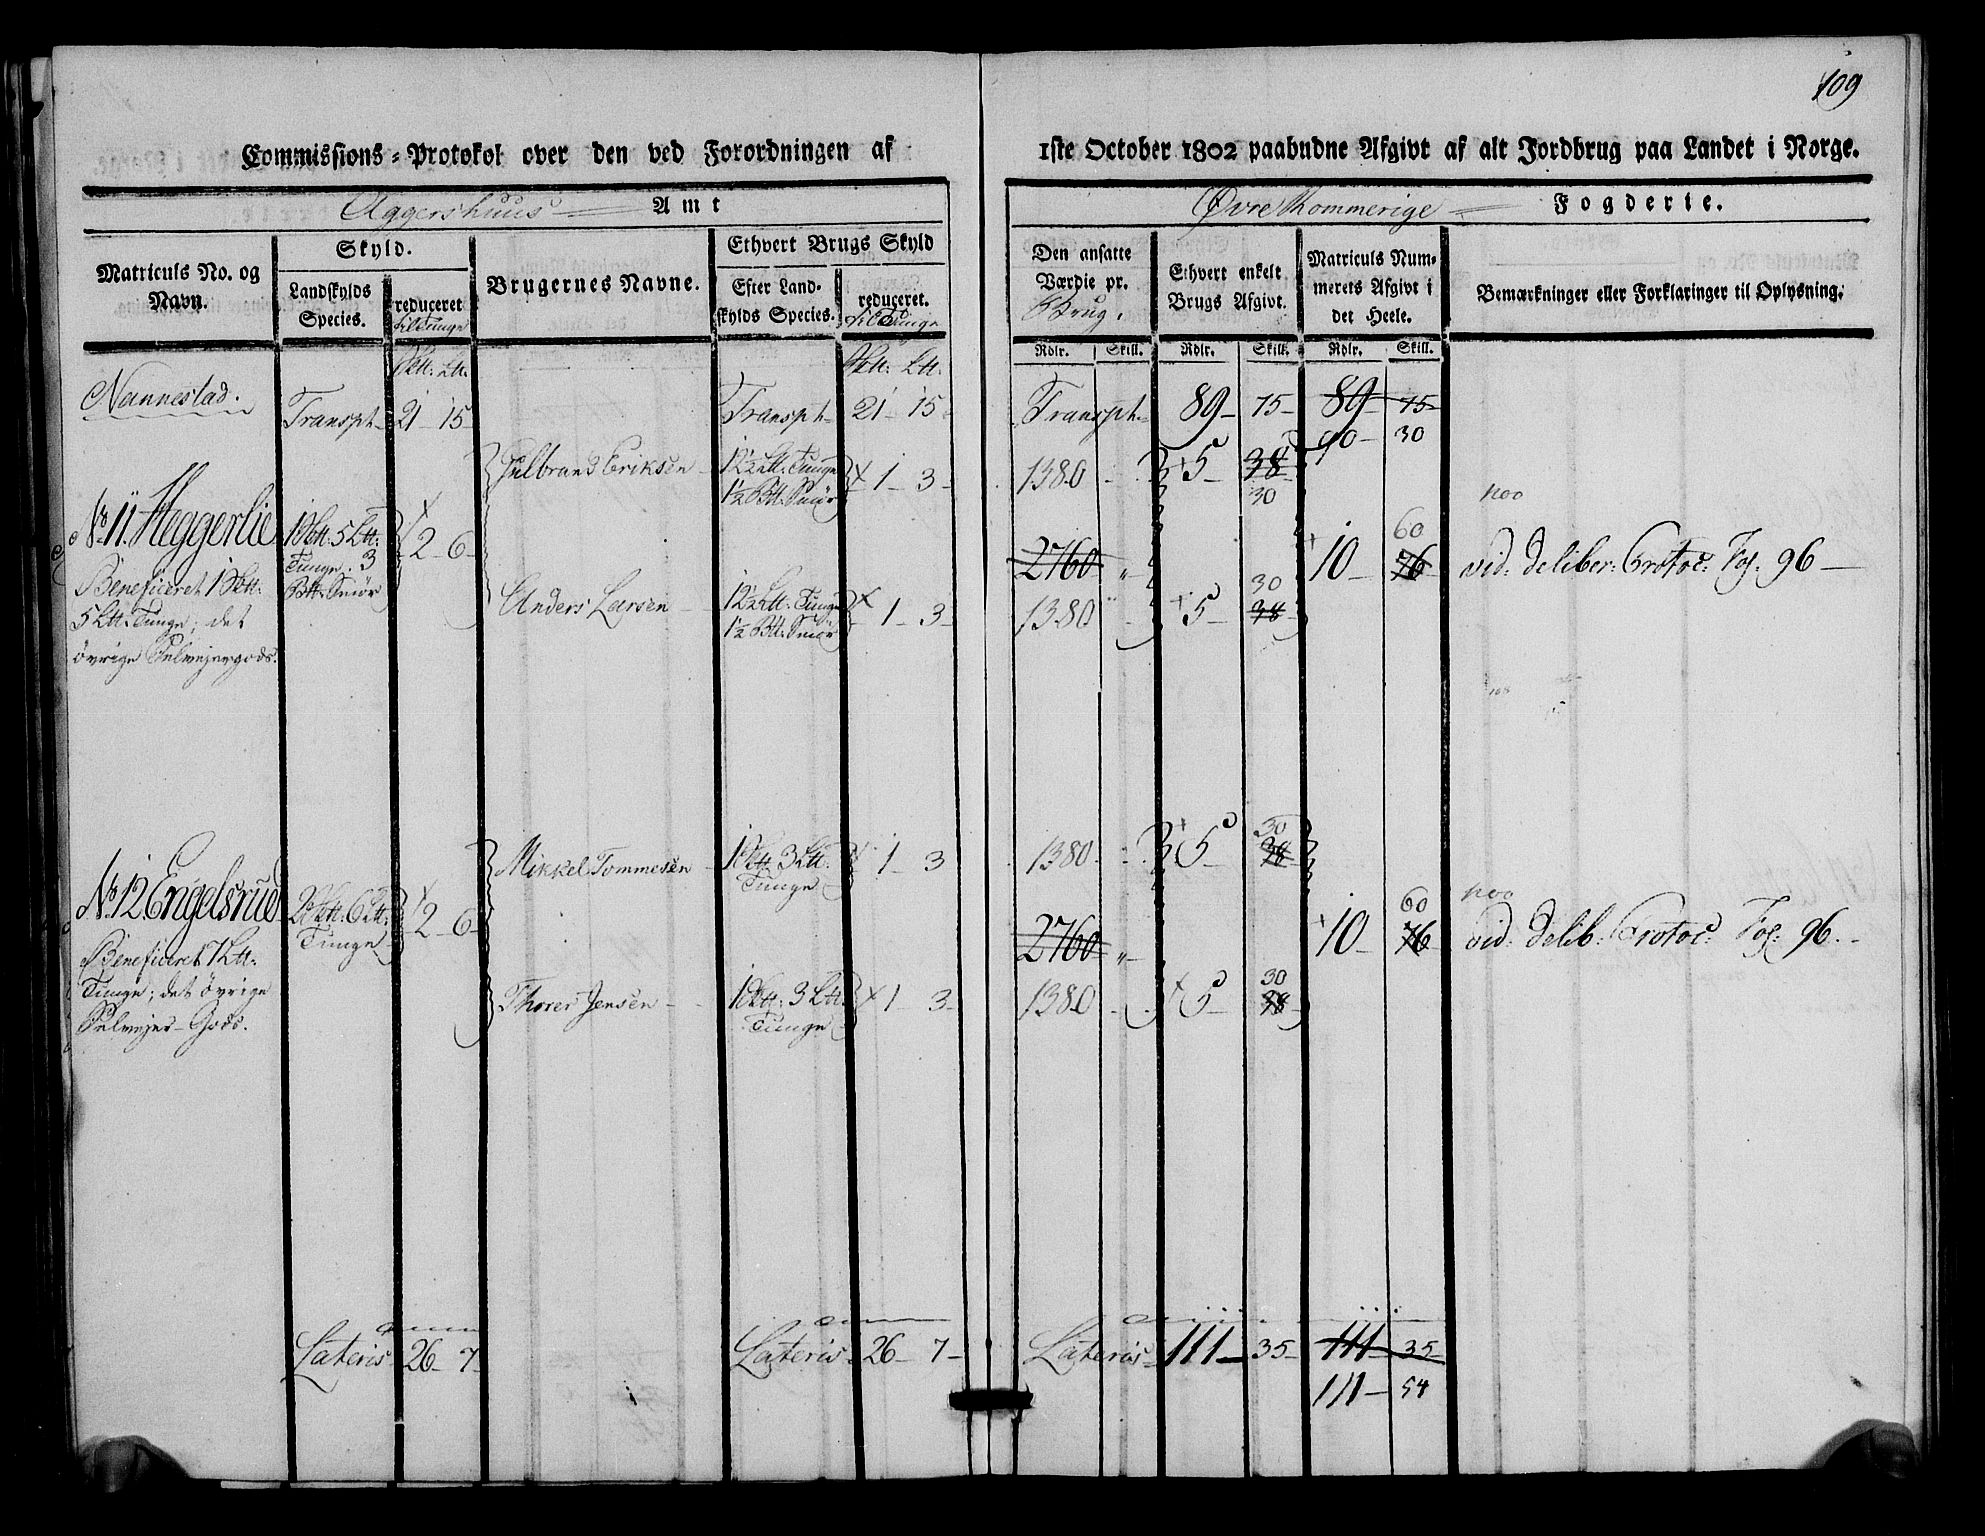 109
Commissions-Protokol over den ved Forordningen af 1ste October 1802 paabudne Afgivt af alt Jordbrug paa Landet i Norge.
Aggershuus Amt
Øvre Rommerige Fogderie.
Matriculs No. og Navn.
Skyld.
Landskylds Species.
reduceret til Tunge
Brugernes Navne.
Ethvert Brugs Skyld
Efter Landskylds Species.
reduceret. til Tunge
Den ansatte Værdie pr. Brug.
Ethvert enkelt Brugs Afgivt.
Matriculs Nummerets Afgivt i det Heele.
Bemærkninger eller Forklaringer til Oplysning.
Rdlr. Skill. Rdlr. Skill. Rdlr. Skill.
Nannestad. Transpt. 21 - 15 - Transpt. 21 - 15 Transpt. 89 - 75 - 89 - 75
90 - 30
Gulbrand Eriksen 12½ Ltt: Tunge 1½ Btt: Smör 1 - 3 - 1380 5 38 30
No. 11. Heggerlie 1 Sktt: 5 Ltt: Tunge. 3 Btt: Smör 2 - 6 - 2760 " 10 - 76 60 vid: deliber: Protoc: Fol: 96
Beneficeret 1 Sktt:
5 Ltt: Tunge; det
övrige Selvejergods.
Anders Larsen 12½ Ltt: Tunge 1½ Btt: Smör 1 - 3 - 1380 5 - 38 30
Mikkel Tommesen 1 Sktt: 3 Ltt: Tunge 1 - 3 1380 5 - 38 30
No. 12. Engelsrud 2 Sktt: 6 Ltt: Tunge 2 - 6 - 2760 " 10 - 76 60 vid: delib: Protoc: Fol: 96.
Beneficeret 1 Ltt:
Tunge; det övrige
Selvejer-Gods.
Thorer Jensen 1 Sktt: 3 Ltt: Tunge 1 - 3 - 1380 5 - 38 30
Lateris 26 - 7 - Lateris 26 - 7 - Lateris 111 - 35 - 111 - 35
111 - 54